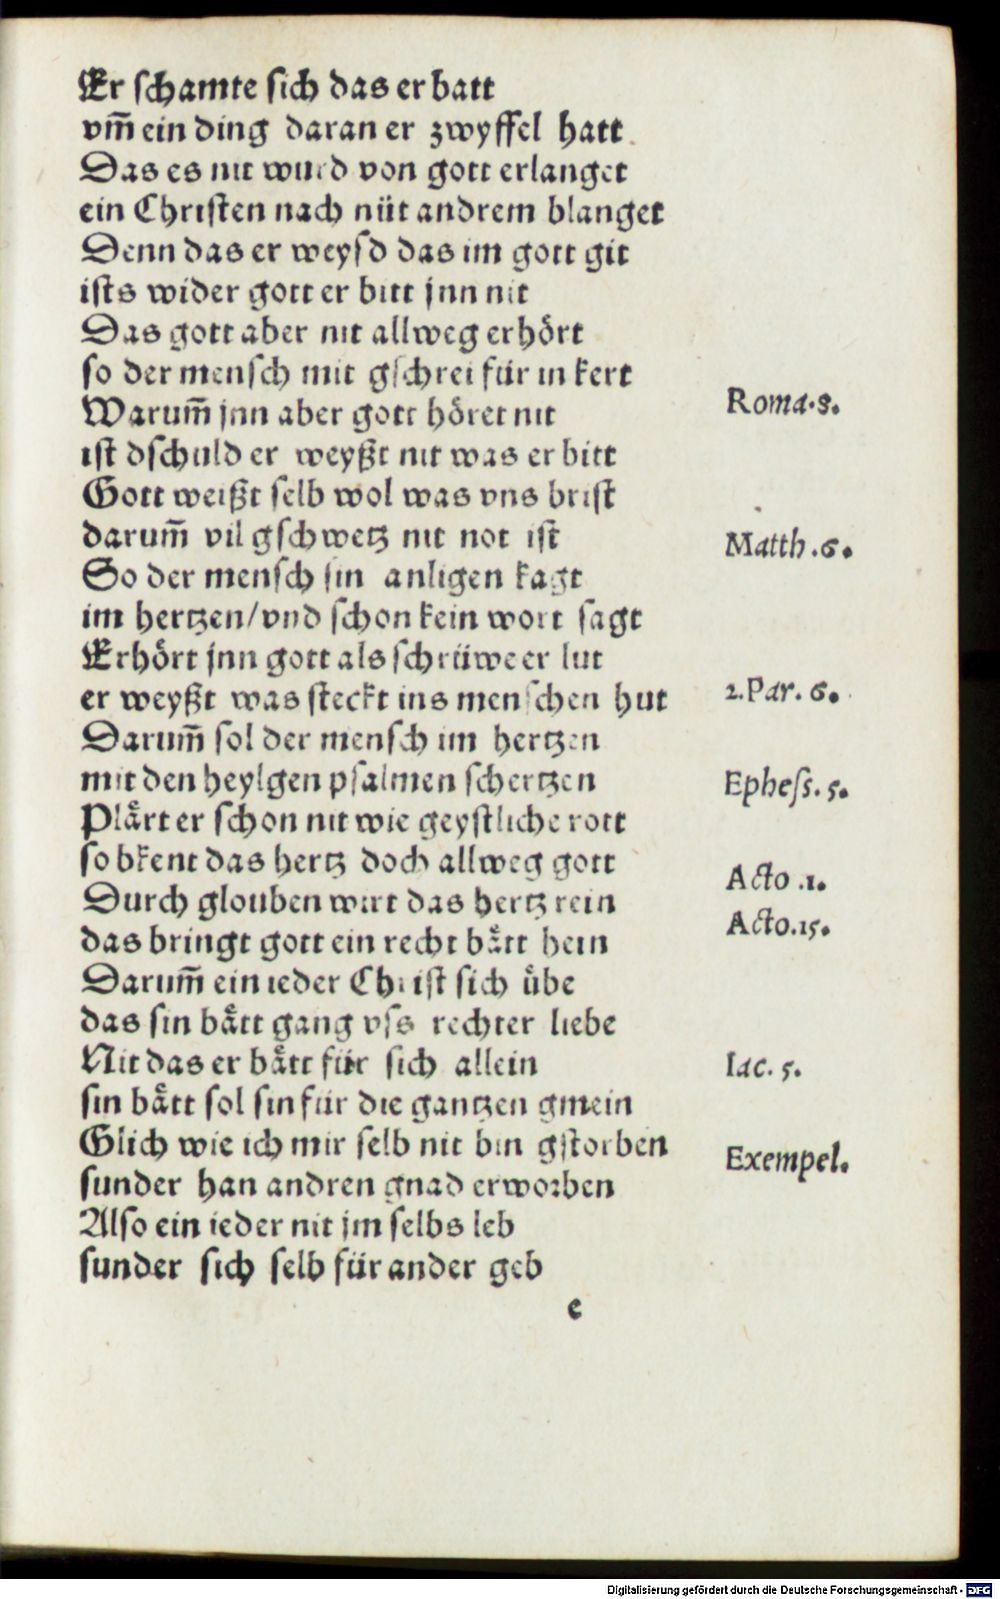 Er schamte sich das er batt
vm̃ ein ding daran er zwyffel hatt
Das es nit wurd von gott erlanget
ein Christen nach nüt andrem blanget
Denn das er weysd das im gott git
ists wider gott er bitt jnn nit
Das gott aber nit allweg erhört
so der mensch mit gschrei für in kert
Roma.8.
Warum̃ jnn aber gott höret nit
ist dschuld er weyßt nit was er bitt
Gott weißt selb wol was vns brist
darum̃ vil gschwetz nit not ist
Matth.6.
So der mensch sin anligen kagt
im hertzen/vnd schon kein wort sagt
Erhört jnn gott als schrüwe er lut
er weyßt was steckt ins menschen hut
2.Par.6.
Darum̃ sol der mensch im hertzen
mit den heylgen psalmen schertzen
Ephess.5.
Plärt er schon nit wie geystliche rott
so bkent das hertz doch allweg gott
Acto.1.
Durch glouben wirt das hertz rein
Acto.15.
das bringt gott ein recht bätt hein
Darum̃ ein ieder Christ sich übe
das sin bätt gang vss rechter liebe
Nit das er bätt für sich allein
Iac.5.
sin bätt sol sin für die gantzen gmein
Glich wie ich mir selb nit bin gstorben
Exempel.
sunder han andren gnad erworben
Also ein ieder nit jm selbs leb
sunder sich selb für ander geb
e
Digitalisierung gefördert durch die Deutsche Forschungsgemeinschaft - DFG